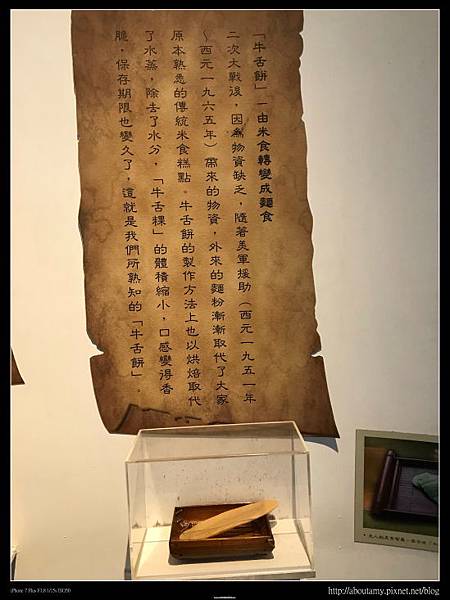 「牛舌餅」—由米食轉變成麵食
二次大戰後，因為物資缺乏，隨著美軍援助（西元一九五一年
～西元一九六五年）帶來的物資，外來的麵粉漸漸取代了大家
原本熟悉的傳統米食糕點。牛舌餅的製作方法上也以烘焙取代
了水蒸，除去了水分，「牛舌粿」的體積縮小，口感變得香
脆，保存期限也變久了，這就是我們所熟知的「牛舌餅」．
http://aboutamy.pixnet.net/blog